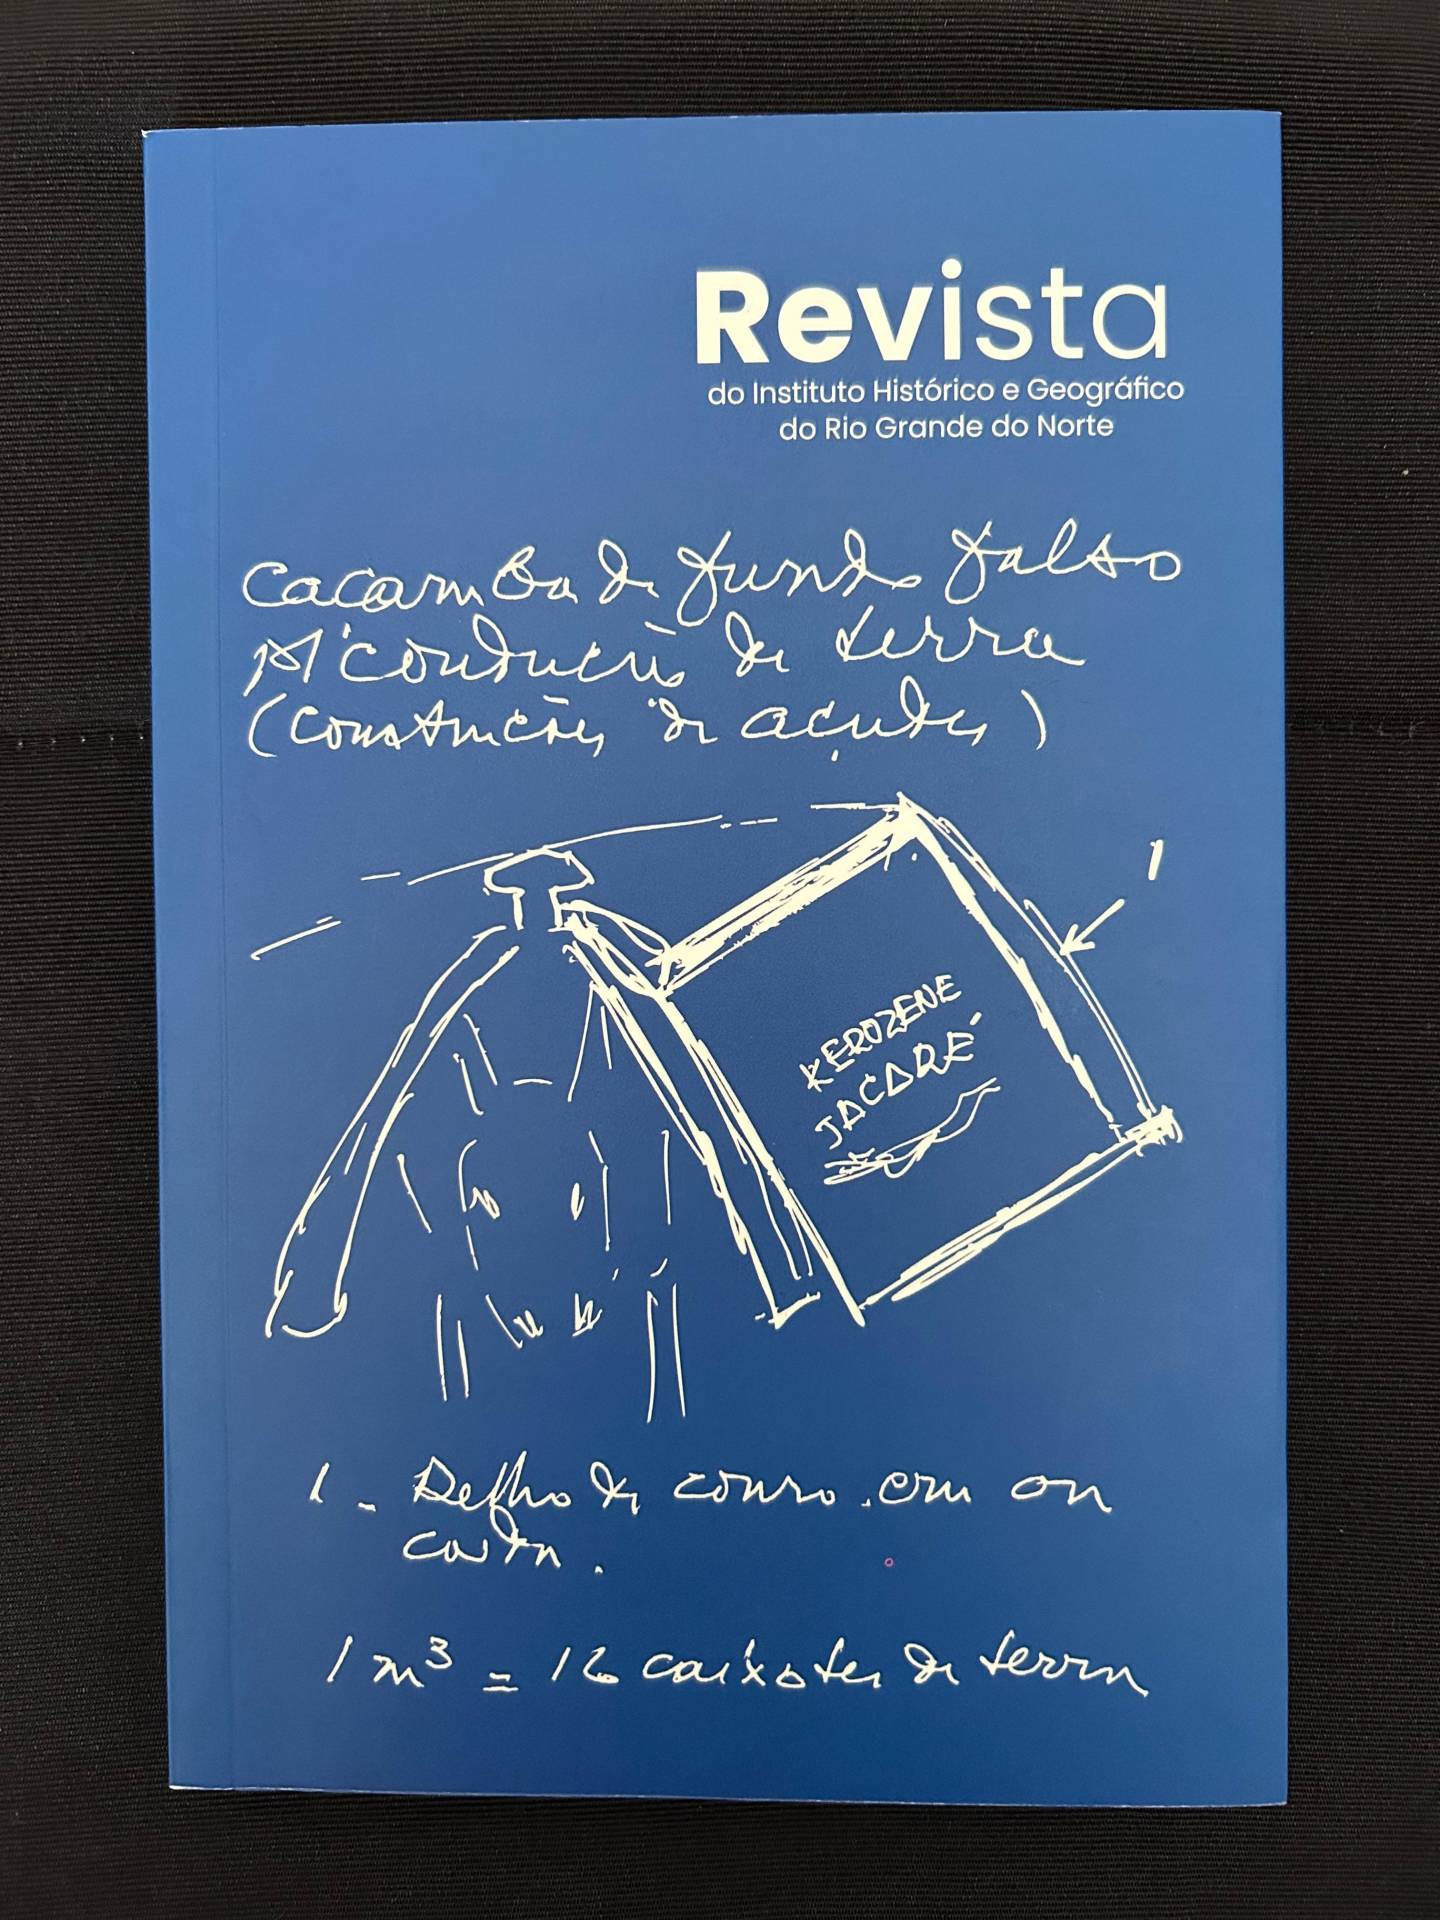 Revista
do Instituto Histórico e Geográfico
do Rio Grande do Norte
Caçamba de fundo falso
p/ condução de terra
(construções de açudes)
1
KEROZENE
JACARÉ
1 - de couro cru ou
corda.
1 m³ = 16 caixotes de terra